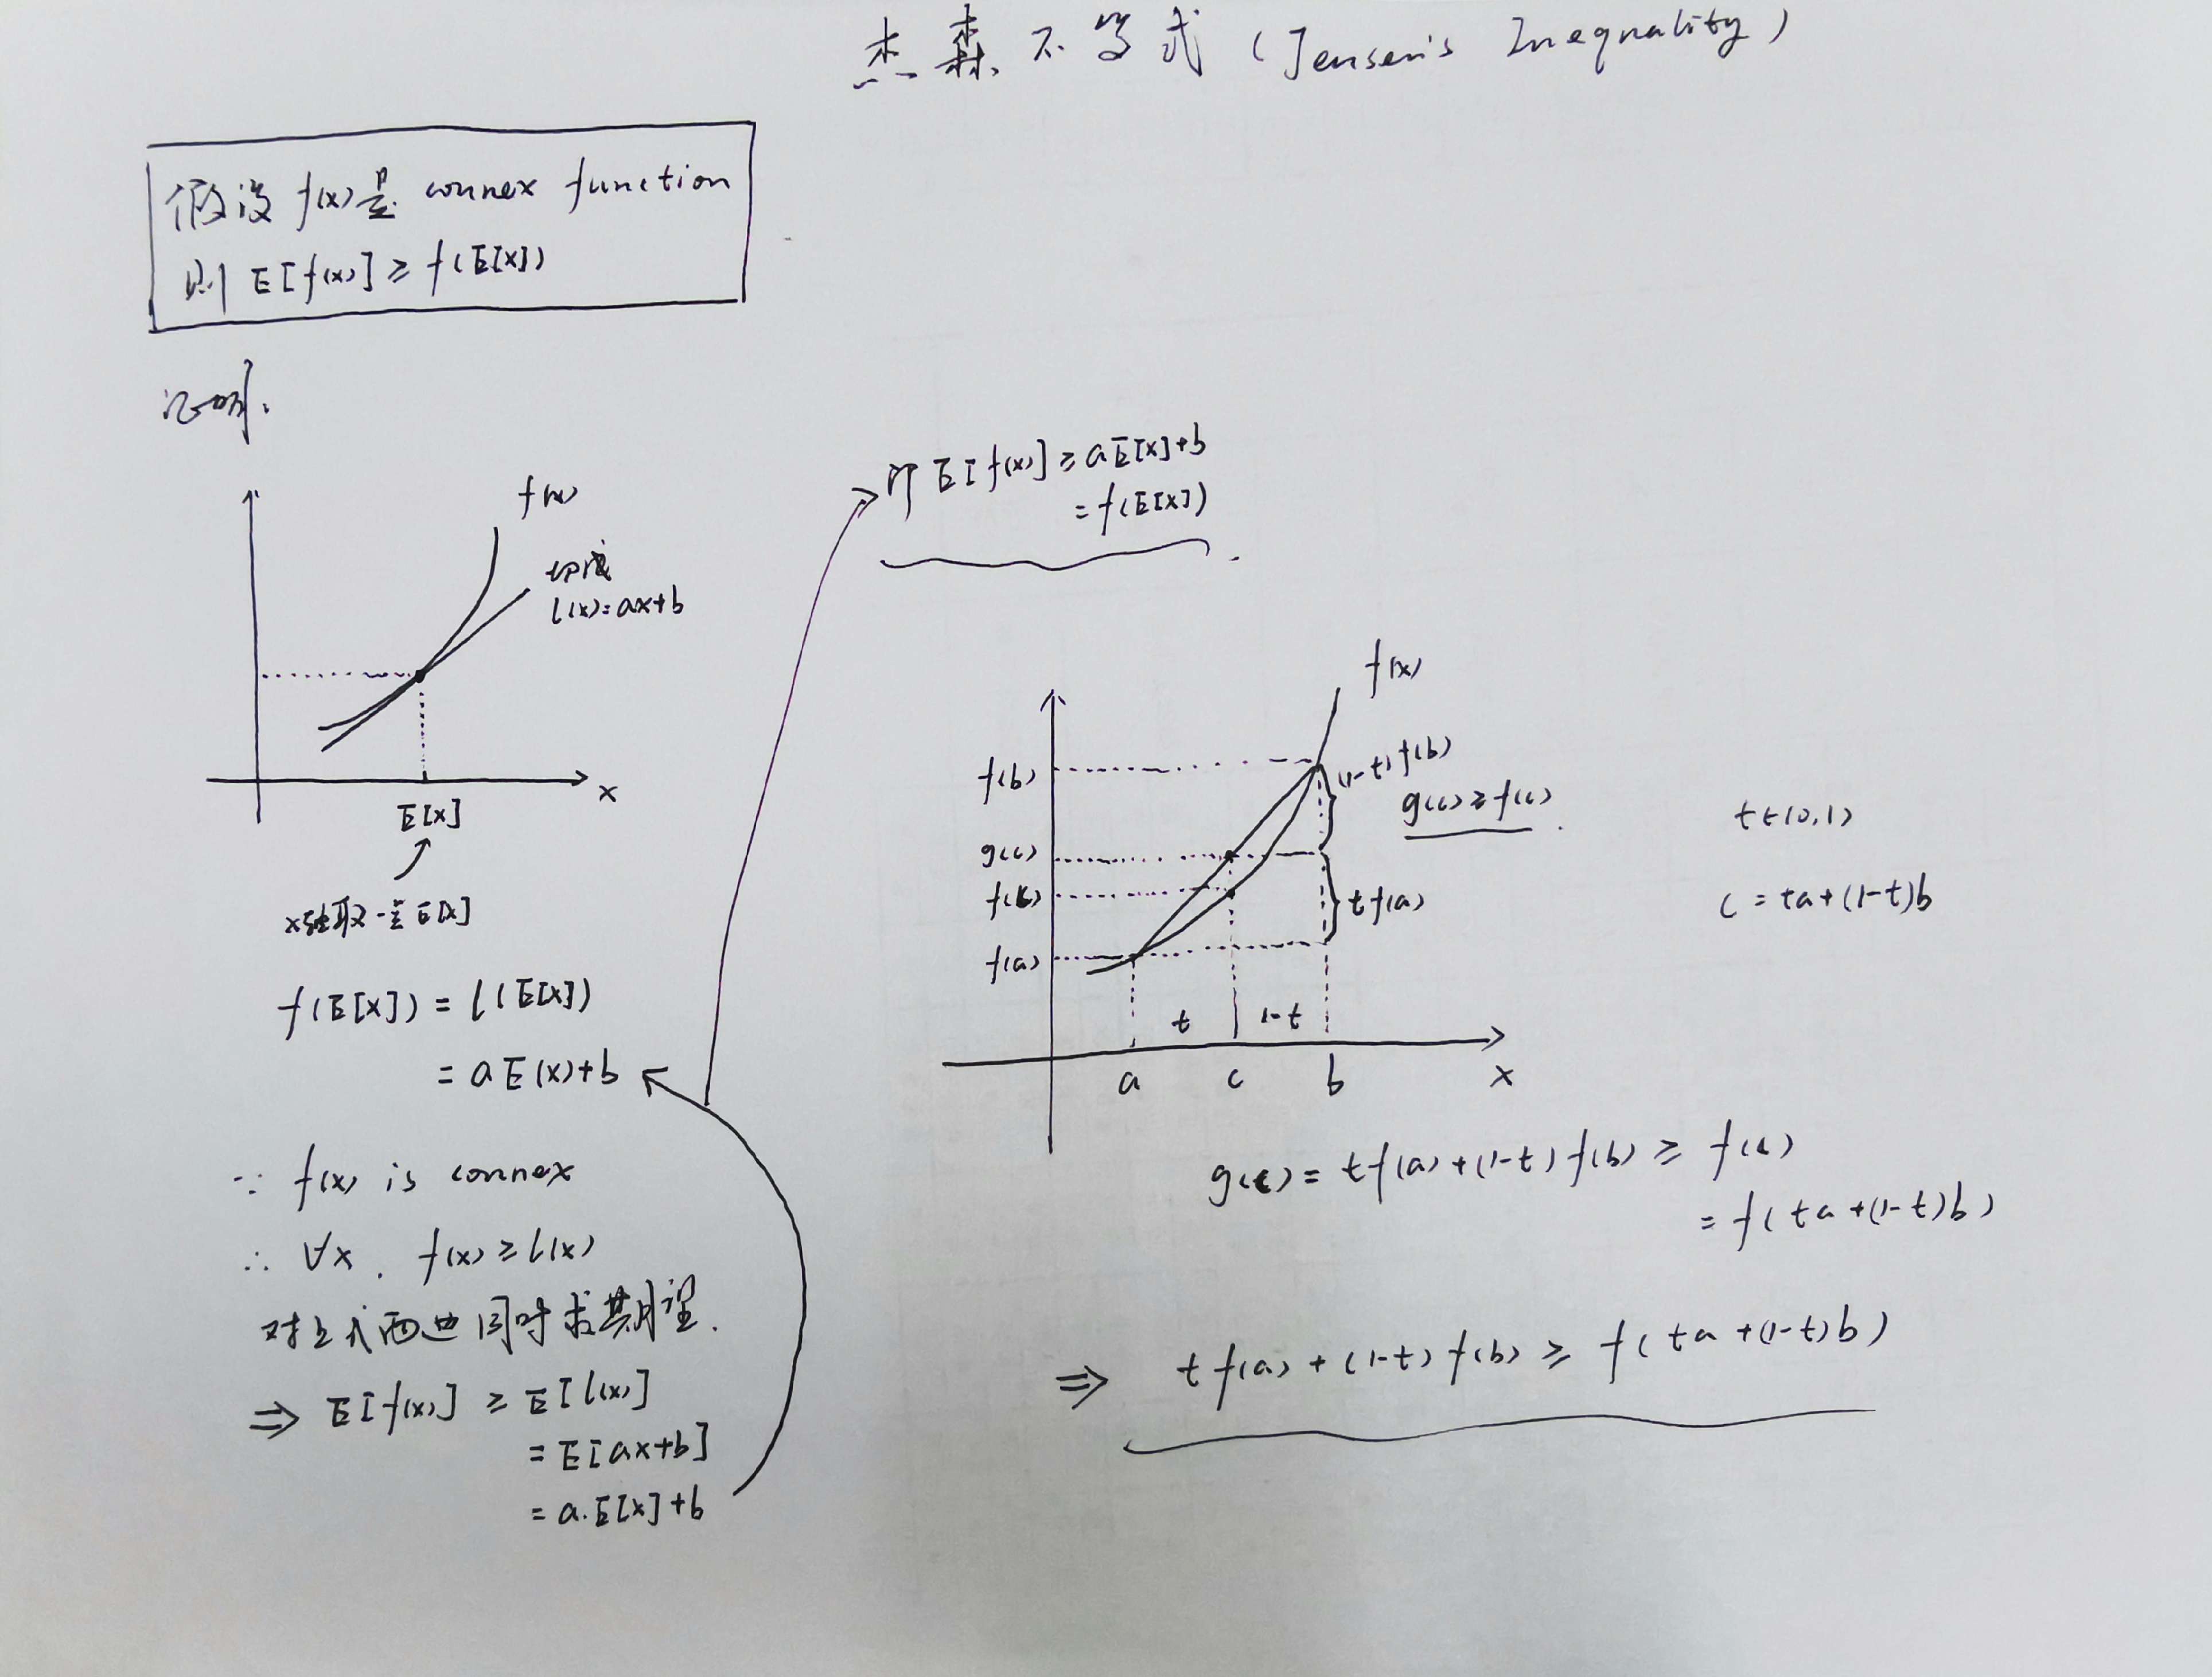 杰森不等式 (Jensen's Inequality)
假设 f(x) 是 convex function
则 E[f(x)] ≥ f(E[x])
证明.
f(x)
切线
l(x)=ax+b
x
E[x]
x轴取一点E[x]
f(E[x]) = l(E[x])
= aE(x)+b
∵ f(x) is convex
∴ ∀x . f(x) ≥ l(x)
对上式两边同时求期望.
⇒ E[f(x)] ≥ E[l(x)]
= E[ax+b]
= a.E[x]+b
即 E[f(x)] ≥ aE[x]+b
= f(E[x])
f(x)
f(b)
(1-t)f(b)
g(c) ≥ f(c)
g(c)
f(c)
tf(a)
f(a)
t
1-t
a
c
b
x
t∈(0,1)
c = ta+(1-t)b
g(c) = tf(a)+(1-t)f(b) ≥ f(c)
= f(ta+(1-t)b)
⇒ tf(a)+(1-t)f(b) ≥ f(ta+(1-t)b)